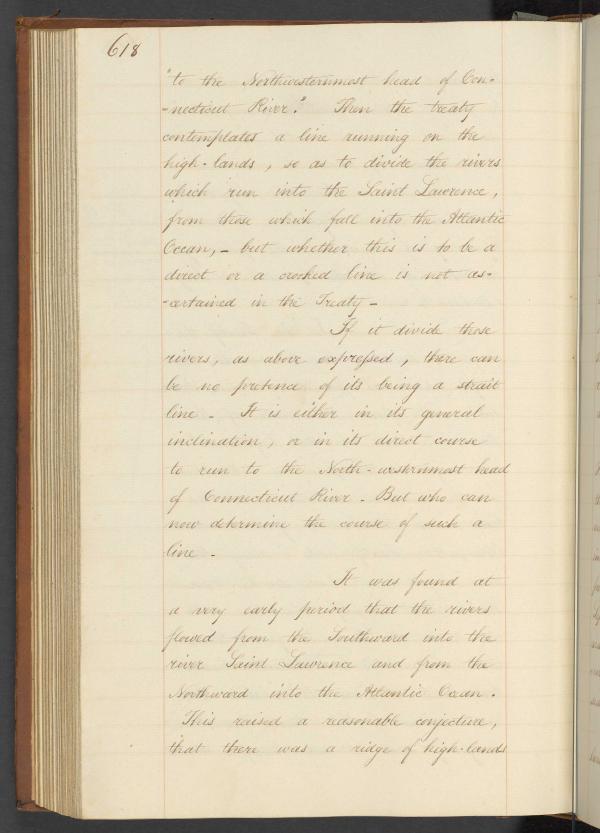 618
"to the Northwesternmost head of Con-
-necticut River." Then the treaty
contemplates a line running on the
high-lands, so as to divide the rivers
which run into the Saint Lawrence,
from those which fall into the Atlantic
Ocean, - but whether this is to be a
direct or a crooked line is not as-
-certained in the Treaty -
If it divide those
rivers, as above expressed, there can
be no pretence of its being a strait
line - It is either in its general
inclination, or in its direct course
to run to the North-westernmost head
of Connecticut River - But who can
now determine the course of such a
line -
It was found at
a very early period that the rivers
flowed from the Southward into the
river Saint Lawrence and from the
Northward into the Atlantic Ocean.
This raised a reasonable conjecture,
that there was a ridge of high-lands